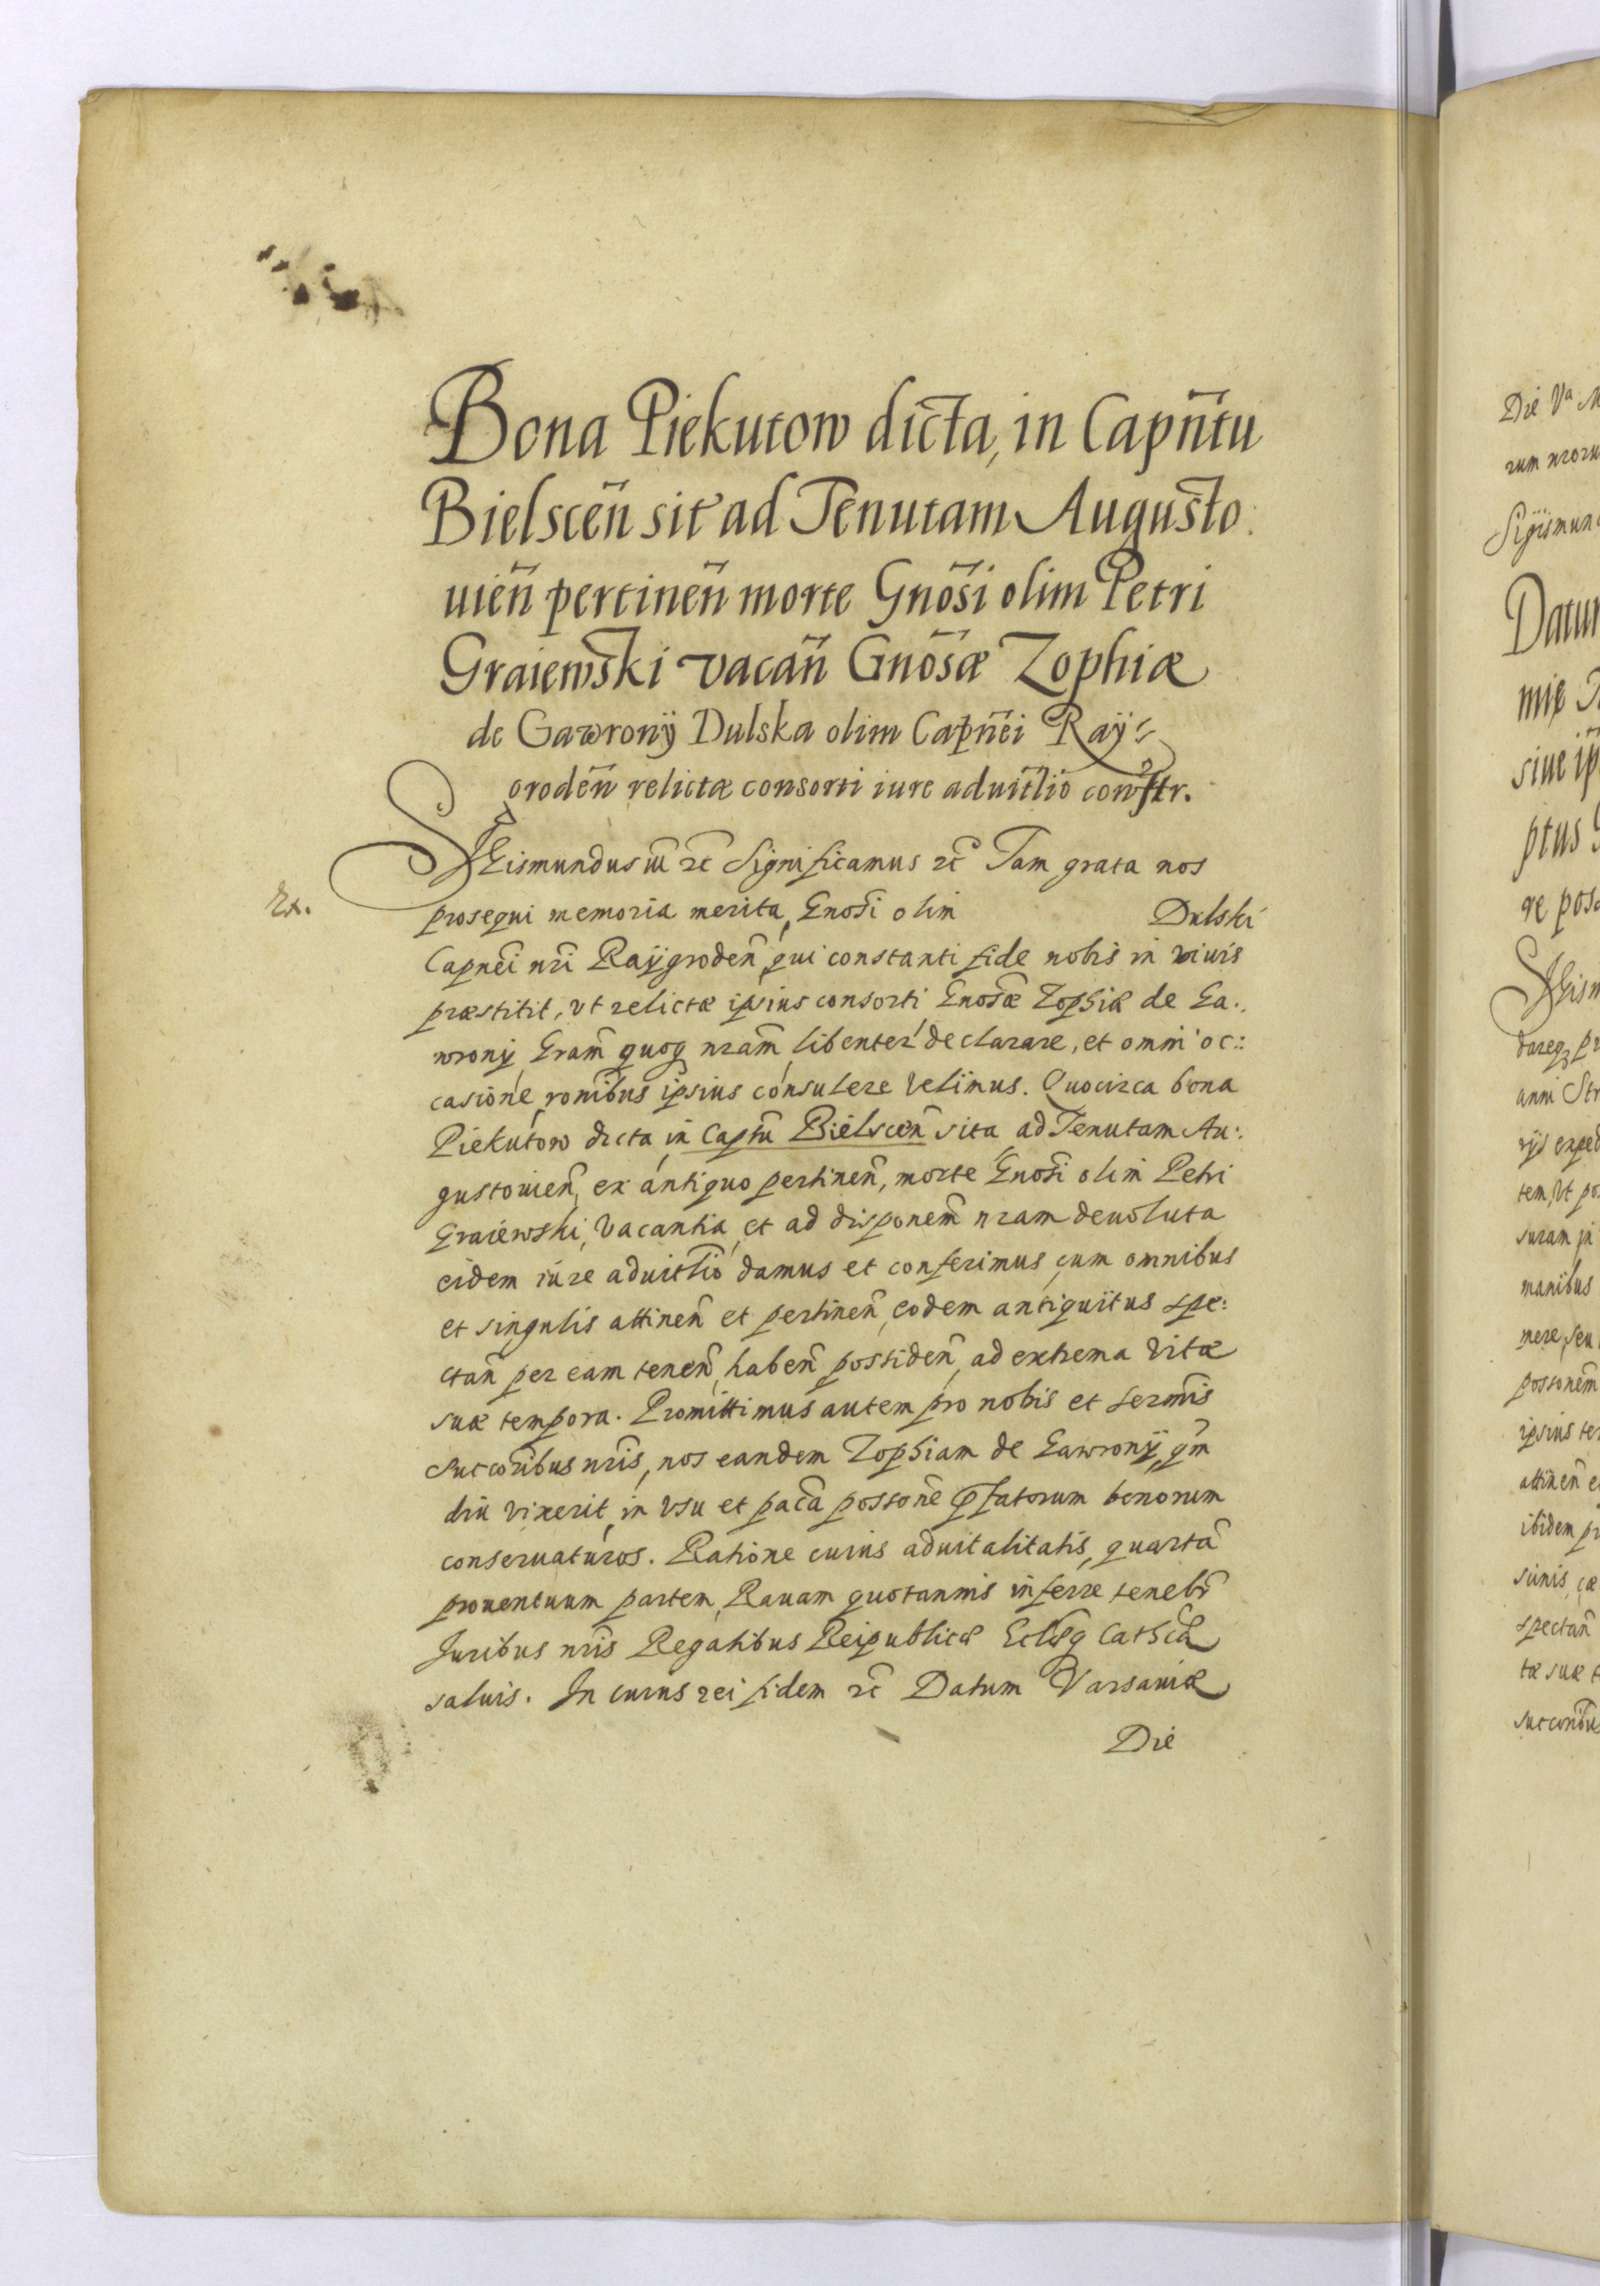 Bona Piekutow dicta, in Capñtu
Bielsceñ sit ad Tenutam Augusto
uieñ pertineñ morte Gnõsi olim Petri
Graiewski vacañ Gnõsæ Zophiæ
de Gawronÿ Dulska olim Capñei Raÿ
grodeñ relictæ consorti iure aduitlio confertr.
Sigismundus iii rc̃ Significamus rc̃ Tam grata nos
Ex.
prosequi memoria merita Gnosĩ olim Dulski
Capneĩ nrĩ Raÿgrodeñ, qui constanti fide nobis in viuis
præstitit, vt relictæ ipsius consorti Gnosæ Zophiæ de Ga:
wronÿ Gram̃ quoq nram̃ libenter declarare, et omni oc:
casione ronĩbus ipsius consulere velimus. Quocirca bona
Piekutow dicta in Captũ Bielsceñ sita ad Tenutam Au:
gustouieñ, ex antiquo pertineñ, morte Gnosĩ olim Petri
Graiewski, vacantia, et ad disponem̃ nram deuoluta
eidem iure aduitlĩo damus et conferimus cum omnibus
et singulis attineñ et pertineñ, eodem antiquitus spe:
ctañ per eam teneñ, habeñ, possideñ, ad extrema vitæ
suæ tempora. Promittimus autem pro nobis et sermĩs
succorĩbus nrĩs, nos eandem Zophiam de Gawronÿ, qm̃
diu vixerit, in vsu et pacã possonẽ p̃fatorum bonorum
conseruaturos. Ratione cuius aduitalitatis, quartã
prouentuum partem, Rauam quotannis inferre tenebr̃
Juribus nrĩs Regalibus Reipublicæ Eccliæq Cathcæ̃
saluis. In cuius rei fidem rc̃ Datum Varsauiæ
Die
Die Vª M
rum nroru
Sigismund
Datum
siue
re poss
Sigism
dareq pr
anni Str
tem, vt po
manibus
nere, seu
possonem̃
ipsius te
attineñ e
ibidem pr
spectañ
tæ suæ t
succorĩbus